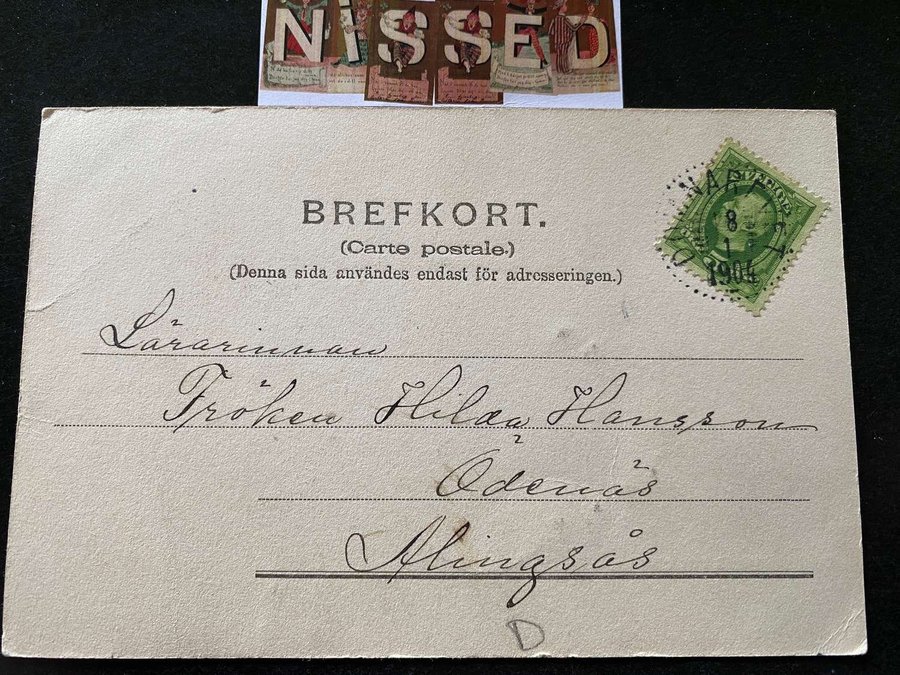 NISSED
BREFKORT.
(Carte postale.)
(Denna sida användes endast för adresseringen.)
SVERIGE
8
1
1904
Lärarinnan
Fröken Hilda Hansson
Ödenäs
Alingsås
D